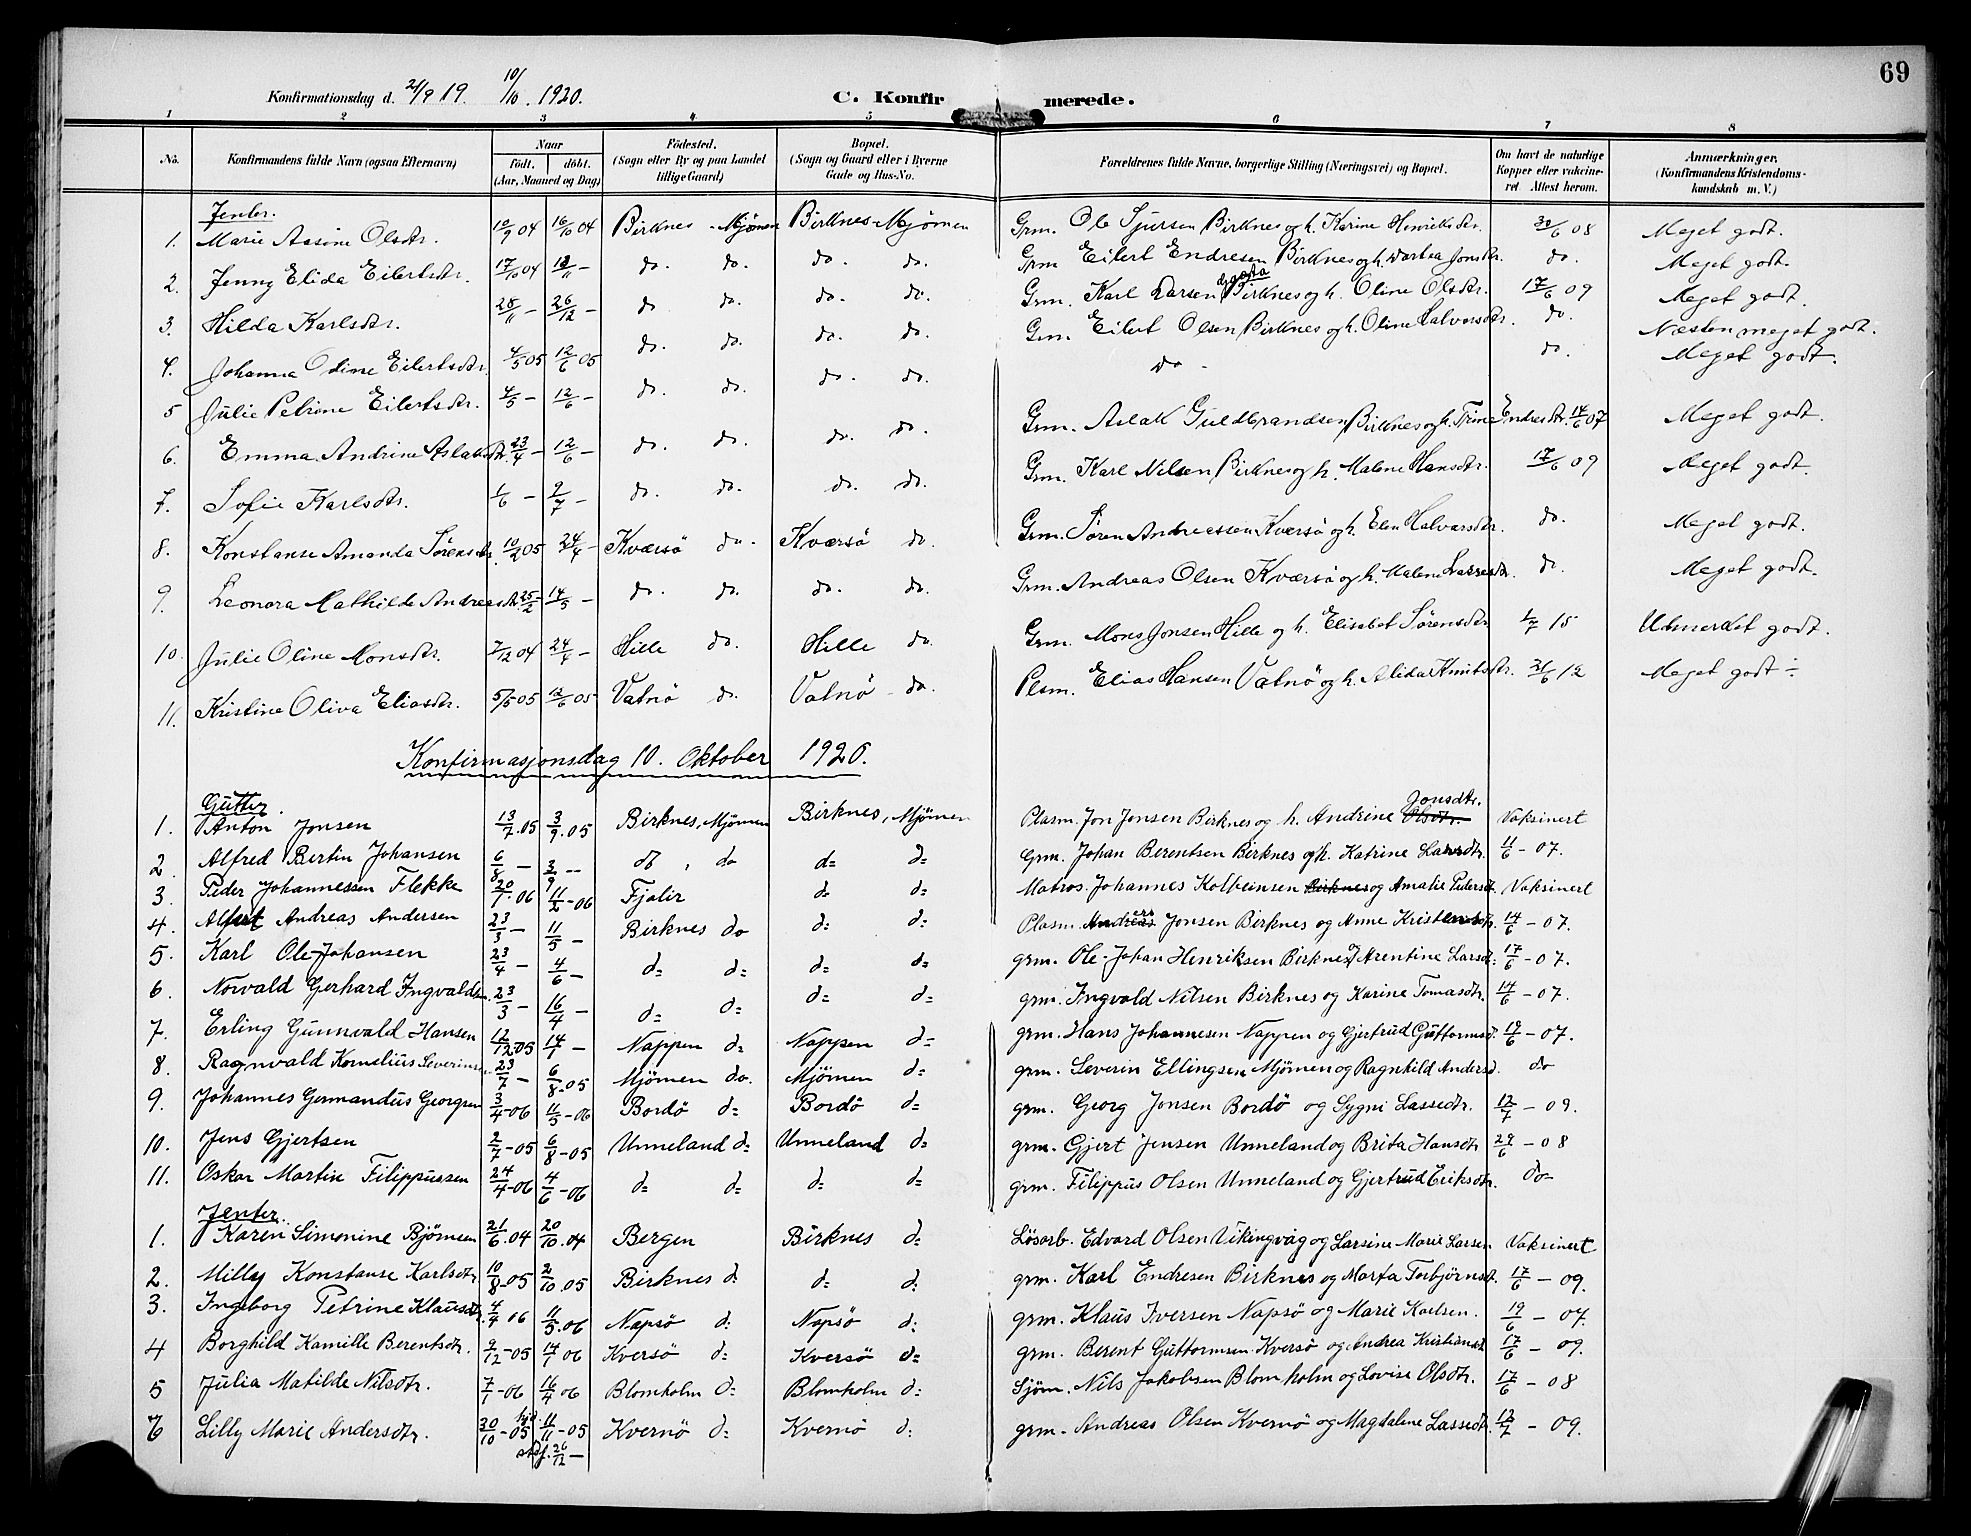 69
Konfirmationsdag d. 21/9 19. 10/10. 1920. C. Konfirmerede.
1 2 3 4 5 6 7 8
No. Konfirmandens fulde Navn (ogsaa Efternavn) Naar födt. döbt. (Aar, Maaned og Dag) Födested. (Sogn eller By og paa Landet tillige Gaard) Bopæl. (Sogn og Gaard eller i Byerne Gade og Hus-No. Forældrenes fulde Navne, borgerlige Stilling (Næringsvei) og Bopæl. Om havt de naturlige Kopper eller vakcineret. Attest herom. Anmærkninger, (Konfirmandens Kristendomskundskab m. V.)
Jenter.
1. Marie Assine Olsdtr. 10/9 04 16/10 04 Birknes - Mjömen Birknes - Mjömen Grm. Ole Sjursen Birknes og h. Karine Henriksdtr. 30/6 08 Meget godt.
2. Jenny Elida Eilertsdtr. 17/10 04 13/11 - do. do. do. do. Grm Eilert Endresen Birknes og h. Dortea Jonsdtr. do. Meget godt.
3. Hilda Karlsdtr. 25/11 - 26/12 - do do. do. do. Grm. Karl Larsen Birknes og h. Oline Olsdtr. 17/6 09 Meget godt.
4. Johanna Odine Eilertsdtr. 4/5 05 12/6 05 do. do. do. do. Grm. Eilert Olsen Birknes og h. Oline Halvorsdtr. do. Næsten meget godt.
5 Julie Petrine Eilertsdtr. 4/5 - 12/6 - do do. do. do. do - do. Meget godt.
6. Emma Andrine Aslaksdtr. 23/4 - 12/6 - do. do. do. do. Grm. Aslak Guldbrandsen Birknes og h. Trine Endresdtr. 14/6 07 Meget godt.
7. Sofie Karlsdtr. 1/6 - 9/7 - do. do. do. do. Grm. Karl Nilsen Birknes og h. Malene Hansdtr. 17/6 09 Meget godt.
8. Konstanse Amanda Sörensdtr. 10/2 05 24/4 - Kværsö do. Kværsö do. Grm. Sören Andreassen Kværsö og h. Elen Halvarsdtr. do. Meget godt.
9. Leonora Mathilde Andreasdtr. 25/2 - 14/5 - do. do. do. do. Grm. Andreas Olsen Kværsö og h. Malene Lassesdtr. do. Meget godt.
10. Julie Oline Monsdtr. 7/12 04 24/4 - Hille do. Hille do. Grm. Mons Jonsen Hille og h. Elisabet Sörensdtr. 1/7 15 Udmerket godt.
11. Kristine Oliva Eliasdtr. 5/5 05 12/6 05 Vatnö do. Vatnö - do. Plsm. Elias Hansen Vatnö og h. Alida Knutsdtr. 31/6 12 Meget godt ÷
Konfirmasjonsdag 10. Oktober 1920.
Gutter.
1. Anton Jonsen 13/7. 05 3/9. 05 Birknes, Mjömen Birknes, Mjömen Plasm. Jon Jonsen Birknes og h. Andrine Olsdtr. Jonsdtr. Vaksinert
2. Alfred Bertin Johansen 6/8 - 3/9 -- do, do d= d= Grm. Johan Berentsen Birknes og h. Katrine Larsdtr. 11/6 - 07.
3. Peder Johannessen Flekke 20/1. 06 11/2 - 06 Fjalir d= d= Matros. Johannes Kolbeinsen Birknes og Amalie Pedersdt. Vaksinert
4. Albert Andreas Andersen 23/3 - 11/5 - Birknes do d= d= Plasm. Andreas Jonsen Birknes og Anne Kristensdtr. 14/6 - 07.
5. Karl Ole-Johansen 23/4 - 4/6 - d= d= d= d= grm. Ole-Johan Henriksen Birknes og Arentine Larsdt: 17/6 - 07.
6. Norvald Gerhard Ingvaldsen. 23/3 - 16/4 - d= d= d= d= grm. Ingvald Nilsen Birknes og Karine Tomasdtr. 14/6 - 07.
7. Erling Gunnvald Hansen 12/12 05 14/1 - Nappen d= Nappen d= grm. Hans Johannesen Nappen og Gjertrud Guttormsd. 19/6 - 07.
8. Ragnvald Kornelius Severinsen. 23/7 - 6/8 - 05 Mjömen do. Mjömen d= grm. Severin Ellingsen Mjömen og Ragnhild Andersd. do
9. Johannes Germandus Georgsen 3/4 - 06 11/5 - 06 Bordö d= Bordö d= grm. Georg Jonsen Bordö og Sygni Lassedtr. 12/7 - 09.
10. Jens Gjertsen 2/7 - 05 6/8 - 05 Unneland d= Unneland d= grm. Gjert Jensen Unneland og Brita Hansdtr 29/6 - 08
11. Oskar Martin Filippussen 24/4 - 06 4/6 - 06 d= d= d= d= grm. Filippus Olsen Unneland og Gjertrud Eriksdtr. do-
Jenter.
1. Karen Simonine Björnsen 21/6. 04 20/10. 04 Bergen Birknes d= Lösarb. Edvard Olsen Vikingvåg og Larsine Marie Larsen Vaksinert
2. Milly Konstanse Karlsdtr. 10/8 - 05 2/10. 05 Birknes d: d= d: grm. Karl Endresen Birknes og Marta Torbjörnsdt. 17/6 - 09.
3. Ingeborg Petrine Klausdtr. 4/4 06 11/5. 06 Napsö d: Napsö d: grm. Klaus Iversen Napsö og Marie Karlsen. 19/6 - 07.
4 Borghild Kamille Berentsdtr. 9/12 - 05 14/1 06 Kversö d= Kversö d= grm. Berent Guttormsen Kversö og Andrea Kristiansdt 17/6 - 09.
5 Julia Matilde Nilsdtr. 7/1 - 06 16/4 06 Blomholm d= Blomholm d: Sjöm. Nils Jakobsen Blomholm og Lovise Olsdtr. 17/6 - 08
6 Lilly Marie Andersdtr. 30/10 - 05 hjd. 11/11 - 05 Kvernö d= Kvernö d: grm. Andreas Olsen Kvernö og Magdalene Lassedt. 12/7 - 09.
stadf. 26/12 -